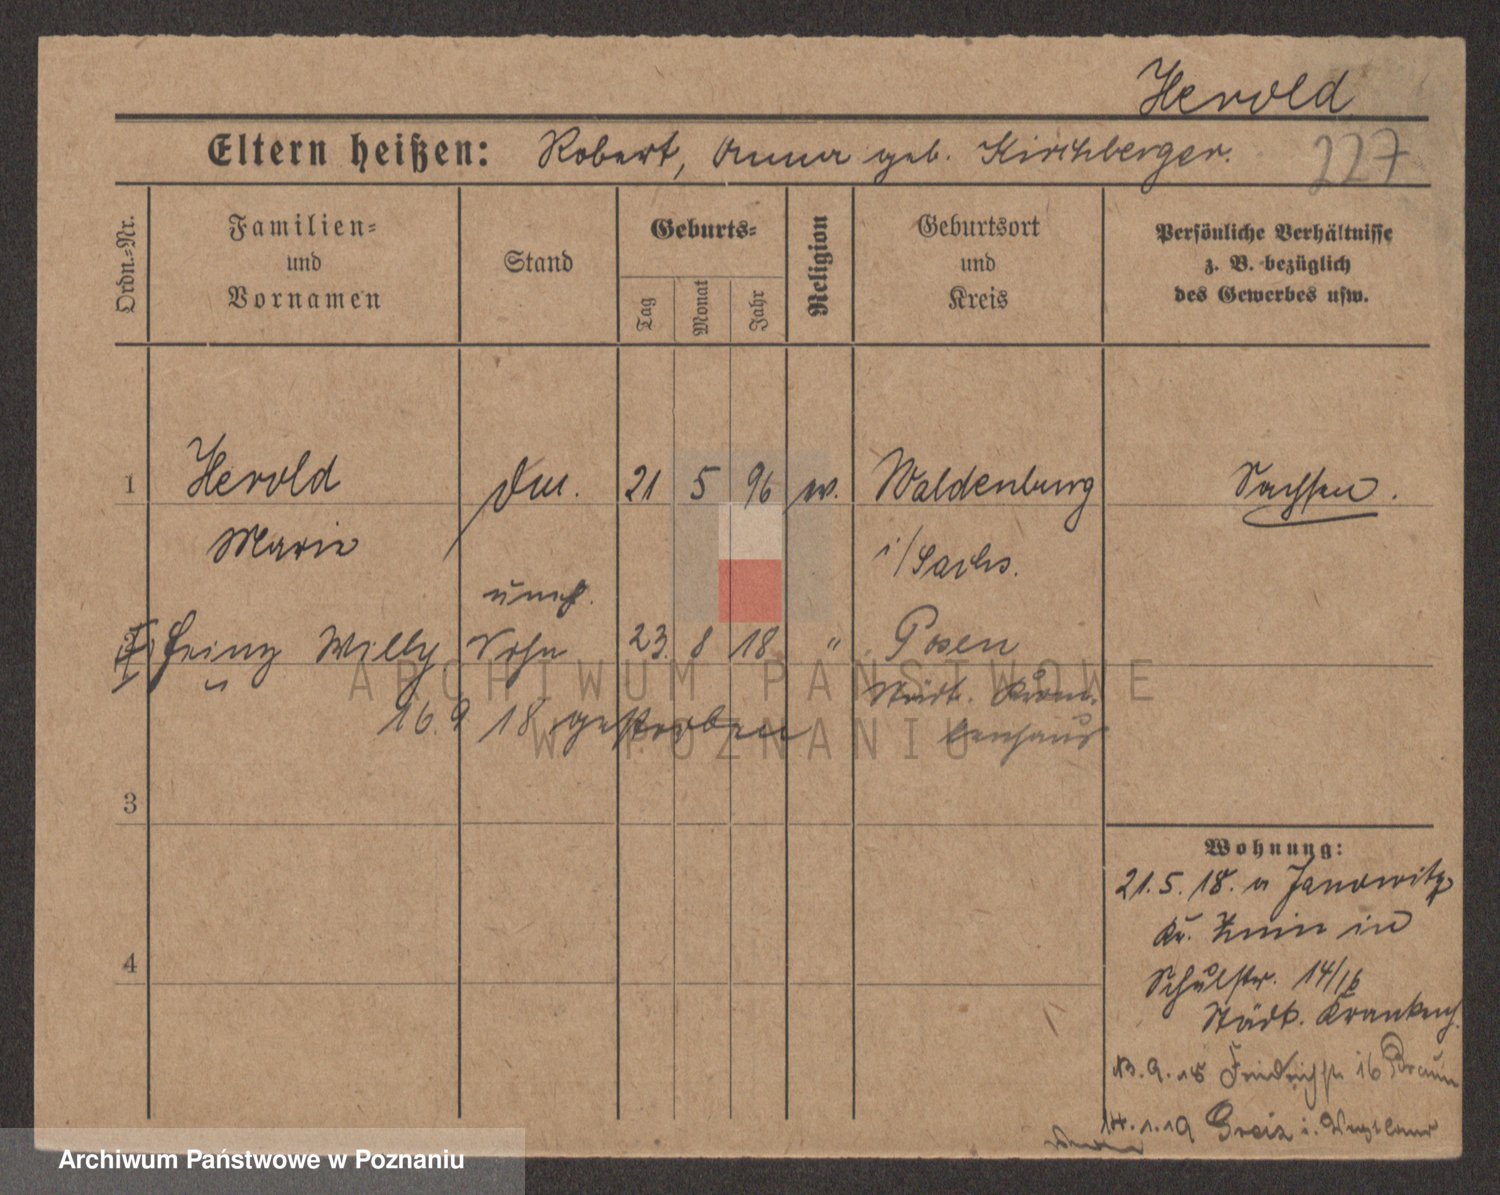 Herold
Eltern heißen: Robert, Anna geb. Kirchberger.
227
Ordn.-Nr.
Familien-
und
Vornamen
Stand
Geburts-
Tag
Monat
Jahr
Religion
Geburtsort
und
Kreis
Persönliche Verhältnisse
z. B. bezüglich
des Gewerbes usw.
1 Herold 21 5 96 Waldenburg Sachsen.
Marie i/Sachs.
unehl.
Heinz Willy Sohn 23. 8 18 " Posen
Städt. Kran-
16.9 18 gestorben kenhaus
3
Wohnung:
21.5.18. v Janowitz
Kr. Znin in
4
Schulstr. 14/16
Städt. Krankenh.
13.9.18 Friedrichstr 16 Braun
14.1.19 Greiz i. Vogtland
ARCHIWUM PAŃSTWOWE
W POZNANIU
Archiwum Państwowe w Poznaniu